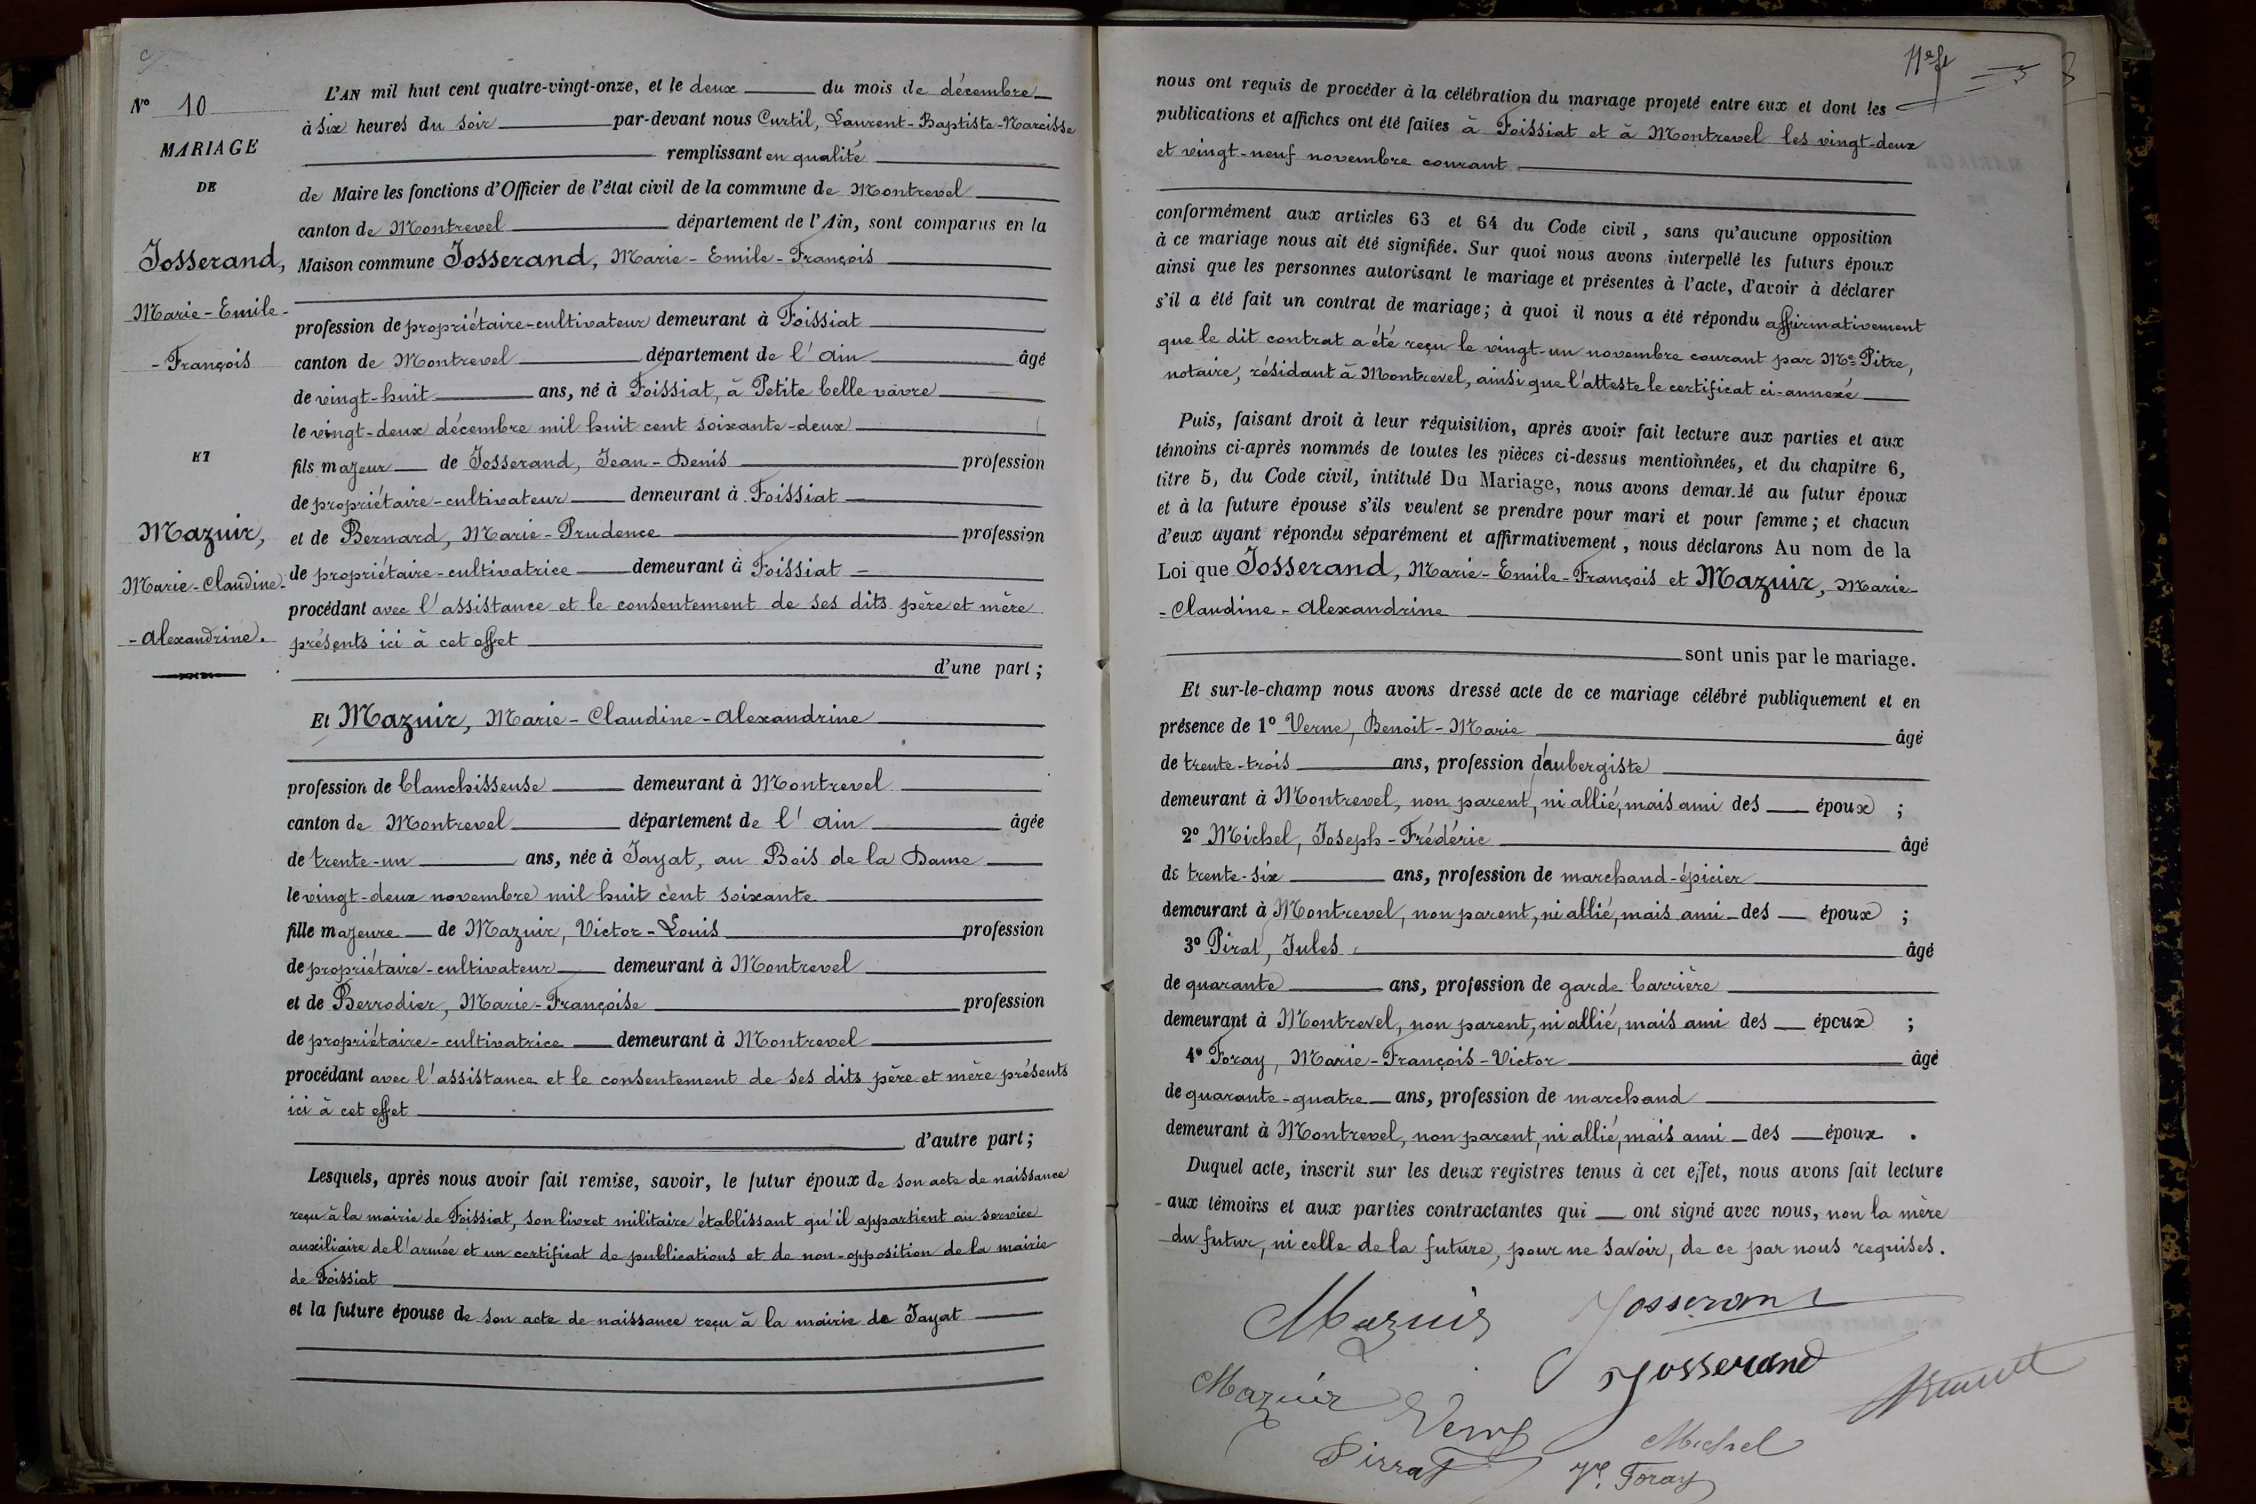 N° 10
MARIAGE
DE
Josserand,
Marie-Emile-
-François
ET
Mazuir,
Marie-Claudine-
-Alexandrine.
L'AN mil huit cent quatre-vingt-onze, et le deux du mois de décembre
à six heures du soir par-devant nous Curtil, Laurent-Baptiste-Narcisse
remplissant en qualité
de Maire les fonctions d'Officier de l'état civil de la commune de Montrevel
canton de Montrevel département de l'Ain, sont comparus en la
Maison commune Josserand, Marie-Emile-François
profession de propriétaire-cultivateur demeurant à Foissiat
canton de Montrevel département de l'Ain âgé
de vingt-huit ans, né à Foissiat, à Petite belle vàvre
le vingt-deux décembre mil huit cent soixante-deux
fils majeur de Josserand, Jean-Denis profession
de propriétaire-cultivateur demeurant à Foissiat
et de Bernard, Marie-Prudence profession
de propriétaire-cultivatrice demeurant à Foissiat
procédant avec l'assistance et le consentement de ses dits père et mère
présents ici à cet effet
d'une part ;
Et Mazuir, Marie-Claudine-Alexandrine
profession de blanchisseuse demeurant à Montrevel
canton de Montrevel département de l'Ain âgée
de trente-un ans, née à Jayat, au Bois de la Dame
le vingt-deux novembre mil huit cent soixante
fille majeure de Mazuir, Victor-Louis profession
de propriétaire-cultivateur demeurant à Montrevel
et de Berrodier, Marie-Françoise profession
de propriétaire-cultivatrice demeurant à Montrevel
procédant avec l'assistance et le consentement de ses dits père et mère présents
ici à cet effet
d'autre part ;
Lesquels, après nous avoir fait remise, savoir, le futur époux de son acte de naissance
reçu à la mairie de Foissiat, son livret militaire établissant qu'il appartient au service
auxiliaire de l'armée et un certificat de publications et de non-opposition de la mairie
de Foissiat
et la future épouse de son acte de naissance reçu à la mairie de Jayat
nous ont requis de procéder à la célébration du mariage projeté entre eux et dont les
publications et affiches ont été faites à Foissiat et à Montrevel les vingt-deux
et vingt-neuf novembre courant
conformément aux articles 63 et 64 du Code civil, sans qu'aucune opposition
à ce mariage nous ait été signifiée. Sur quoi nous avons interpellé les futurs époux
ainsi que les personnes autorisant le mariage et présentes à l'acte, d'avoir à déclarer
s'il a été fait un contrat de mariage ; à quoi il nous a été répondu affirmativement
que le dit contrat a été reçu le vingt-un novembre courant par Me Pitre,
notaire, résidant à Montrevel, ainsi que l'atteste le certificat ci-annexé
Puis, faisant droit à leur réquisition, après avoir fait lecture aux parties et aux
témoins ci-après nommés de toutes les pièces ci-dessus mentionnées, et du chapitre 6,
titre 5, du Code civil, intitulé Du Mariage, nous avons demandé au futur époux
et à la future épouse s'ils veulent se prendre pour mari et pour femme ; et chacun
d'eux ayant répondu séparément et affirmativement, nous déclarons Au nom de la
Loi que Josserand, Marie-Emile-François et Mazuir, Marie-
-Claudine-Alexandrine
sont unis par le mariage.
Et sur-le-champ nous avons dressé acte de ce mariage célébré publiquement et en
présence de 1° Verne, Benoit-Marie âgé
de trente-trois ans, profession d'aubergiste
demeurant à Montrevel, non parent, ni allié, mais ami des époux ;
2° Michel, Joseph-Frédéric âgé
de trente-six ans, profession de marchand-épicier
demeurant à Montrevel, non parent, ni allié, mais ami des époux ;
3° Pirat, Jules âgé
de quarante ans, profession de garde barrière
demeurant à Montrevel, non parent, ni allié, mais ami des époux ;
4° Foray, Marie-François-Victor âgé
de quarante-quatre ans, profession de marchand
demeurant à Montrevel, non parent, ni allié, mais ami des époux.
Duquel acte, inscrit sur les deux registres tenus à cet effet, nous avons fait lecture
aux témoins et aux parties contractantes qui ont signé avec nous, non la mère
du futur, ni celle de la future, pour ne savoir, de ce par nous requises.
Mazuir Josserand
Josserand
Mazuir
Verne
Michel
Pirrat
Foray